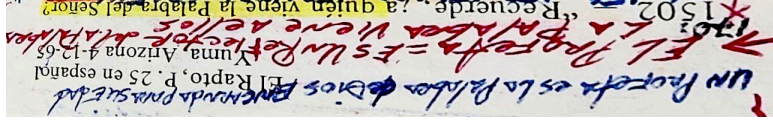 UN PROFETA ES LA PALABRA DE DIOS ENCARNADA PARA SU EDAD
El Rapto, P. 25 en español
Yuma, Arizona 4-12-65
EL PROFETA = ES UN REFLECTOR DE LA PALABRA
LA PALABRA VIENE A ELLOS
1502 "Recuerde... ¿a quién viene la Palabra del Señor?